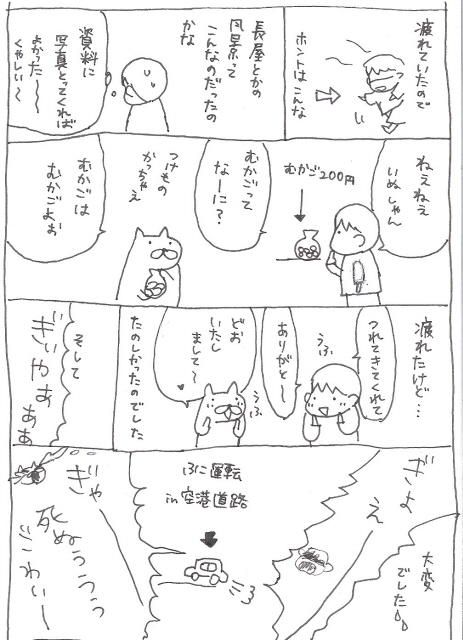 疲れていたので
ホントはこんな
長屋とかの
風景って
こんなのだったの
かな
資料に
写真とってくれば
よかった〜〜
くやしい〜
ねぇねぇ
いぬしゃん
むかご200円
むかごって
なーに？
つけもの
かっちゃえ
むかごは
むかごよぉ
疲れたけど…
つれてきてくれて
ありがと〜
うふ
どお
いたし
まして〜
うふ
たのしかったのでした
そして
ぎぃやぁ
ああ
大変
でした
ぎょ
え
ぷに運転
in 空港道路
ぎゃ
死ぬぅぅぅっ
こわい〜